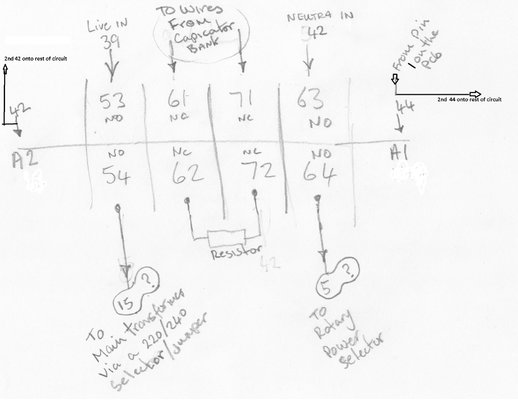 Live IN
39
To Wires
From
Capicator
BANK
NEUTRA IN
42
From Pin
1 on the
Pcb
2nd 42 onto rest of circuit
2nd 44 onto rest of circuit
42
44
53
61
71
63
NO
NC
NC
NO
A2
A1
NO
NC
NC
NO
54
62
72
64
Resistor
42
15 ?
5 ?
To
Main transformer
via a 220/240
Selector/Jumper
To
Rotary
Power
Selector